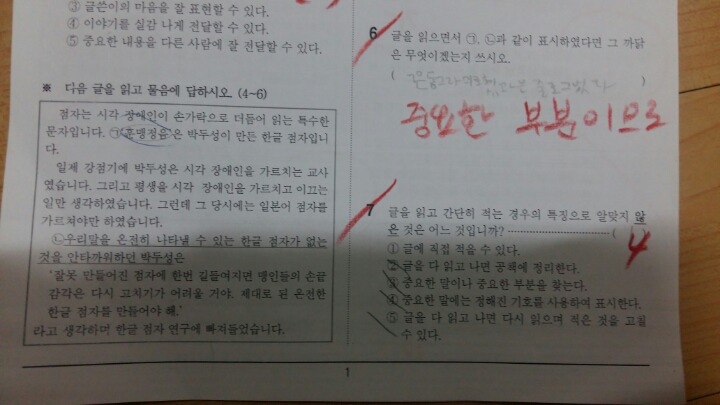 ③ 글쓴이의 마음을 잘 표현할 수 있다.
④ 이야기를 실감 나게 전달할 수 있다.
⑤ 중요한 내용을 다른 사람에 잘 전달할 수 있다.
※ 다음 글을 읽고 물음에 답하시오. (4~6)
점자는 시각 장애인이 손가락으로 더듬어 읽는 특수한
문자입니다. ㉠'훈맹정음'은 박두성이 만든 한글 점자입니
다.
일제 강점기에 박두성은 시각 장애인을 가르치는 교사
였습니다. 그리고 평생을 시각 장애인을 가르치고 이끄는
일만 생각하였습니다. 그런데 그 당시에는 일본어 점자를
가르쳐야만 하였습니다.
㉡우리말을 온전히 나타낼 수 있는 한글 점자가 없는
것을 안타까워하던 박두성은
'잘못 만들어진 점자에 한번 길들여지면 맹인들의 손끝
감각은 다시 고치기가 어려울 거야. 제대로 된 온전한
한글 점자를 만들어야 해.'
라고 생각하며 한글 점자 연구에 빠져들었습니다.
6
글을 읽으면서 ㉠, ㉡과 같이 표시하였다면 그 까닭
은 무엇이겠는지 쓰시오.
( )
중요한 부분이므로
7
글을 읽고 간단히 적는 경우의 특징으로 알맞지 않
은 것은 어느 것입니까? ( 4 )
① 글에 직접 적을 수 있다.
② 글을 다 읽고 나면 공책에 정리한다.
③ 중요한 말이나 중요한 부분을 찾는다.
④ 중요한 말에는 정해진 기호를 사용하여 표시한다.
⑤ 글을 다 읽고 나면 다시 읽으며 적은 것을 고칠
수 있다.
1